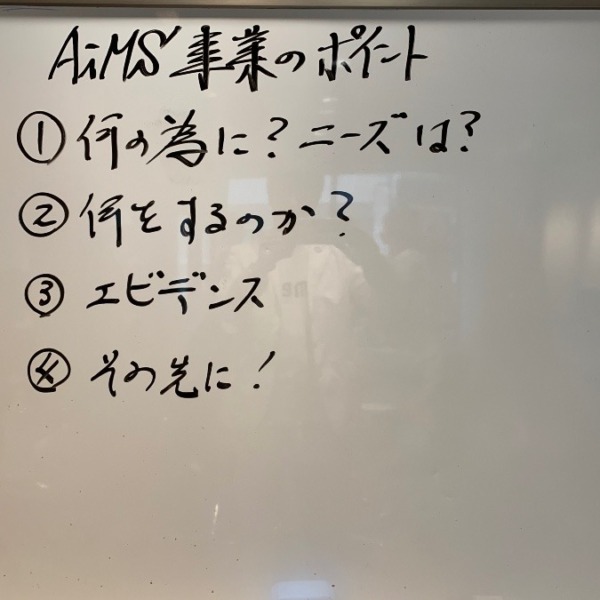 AiMS事業のポイント
①何の為に?ニーズは?
②何をするのか?
③エビデンス
④その先に!